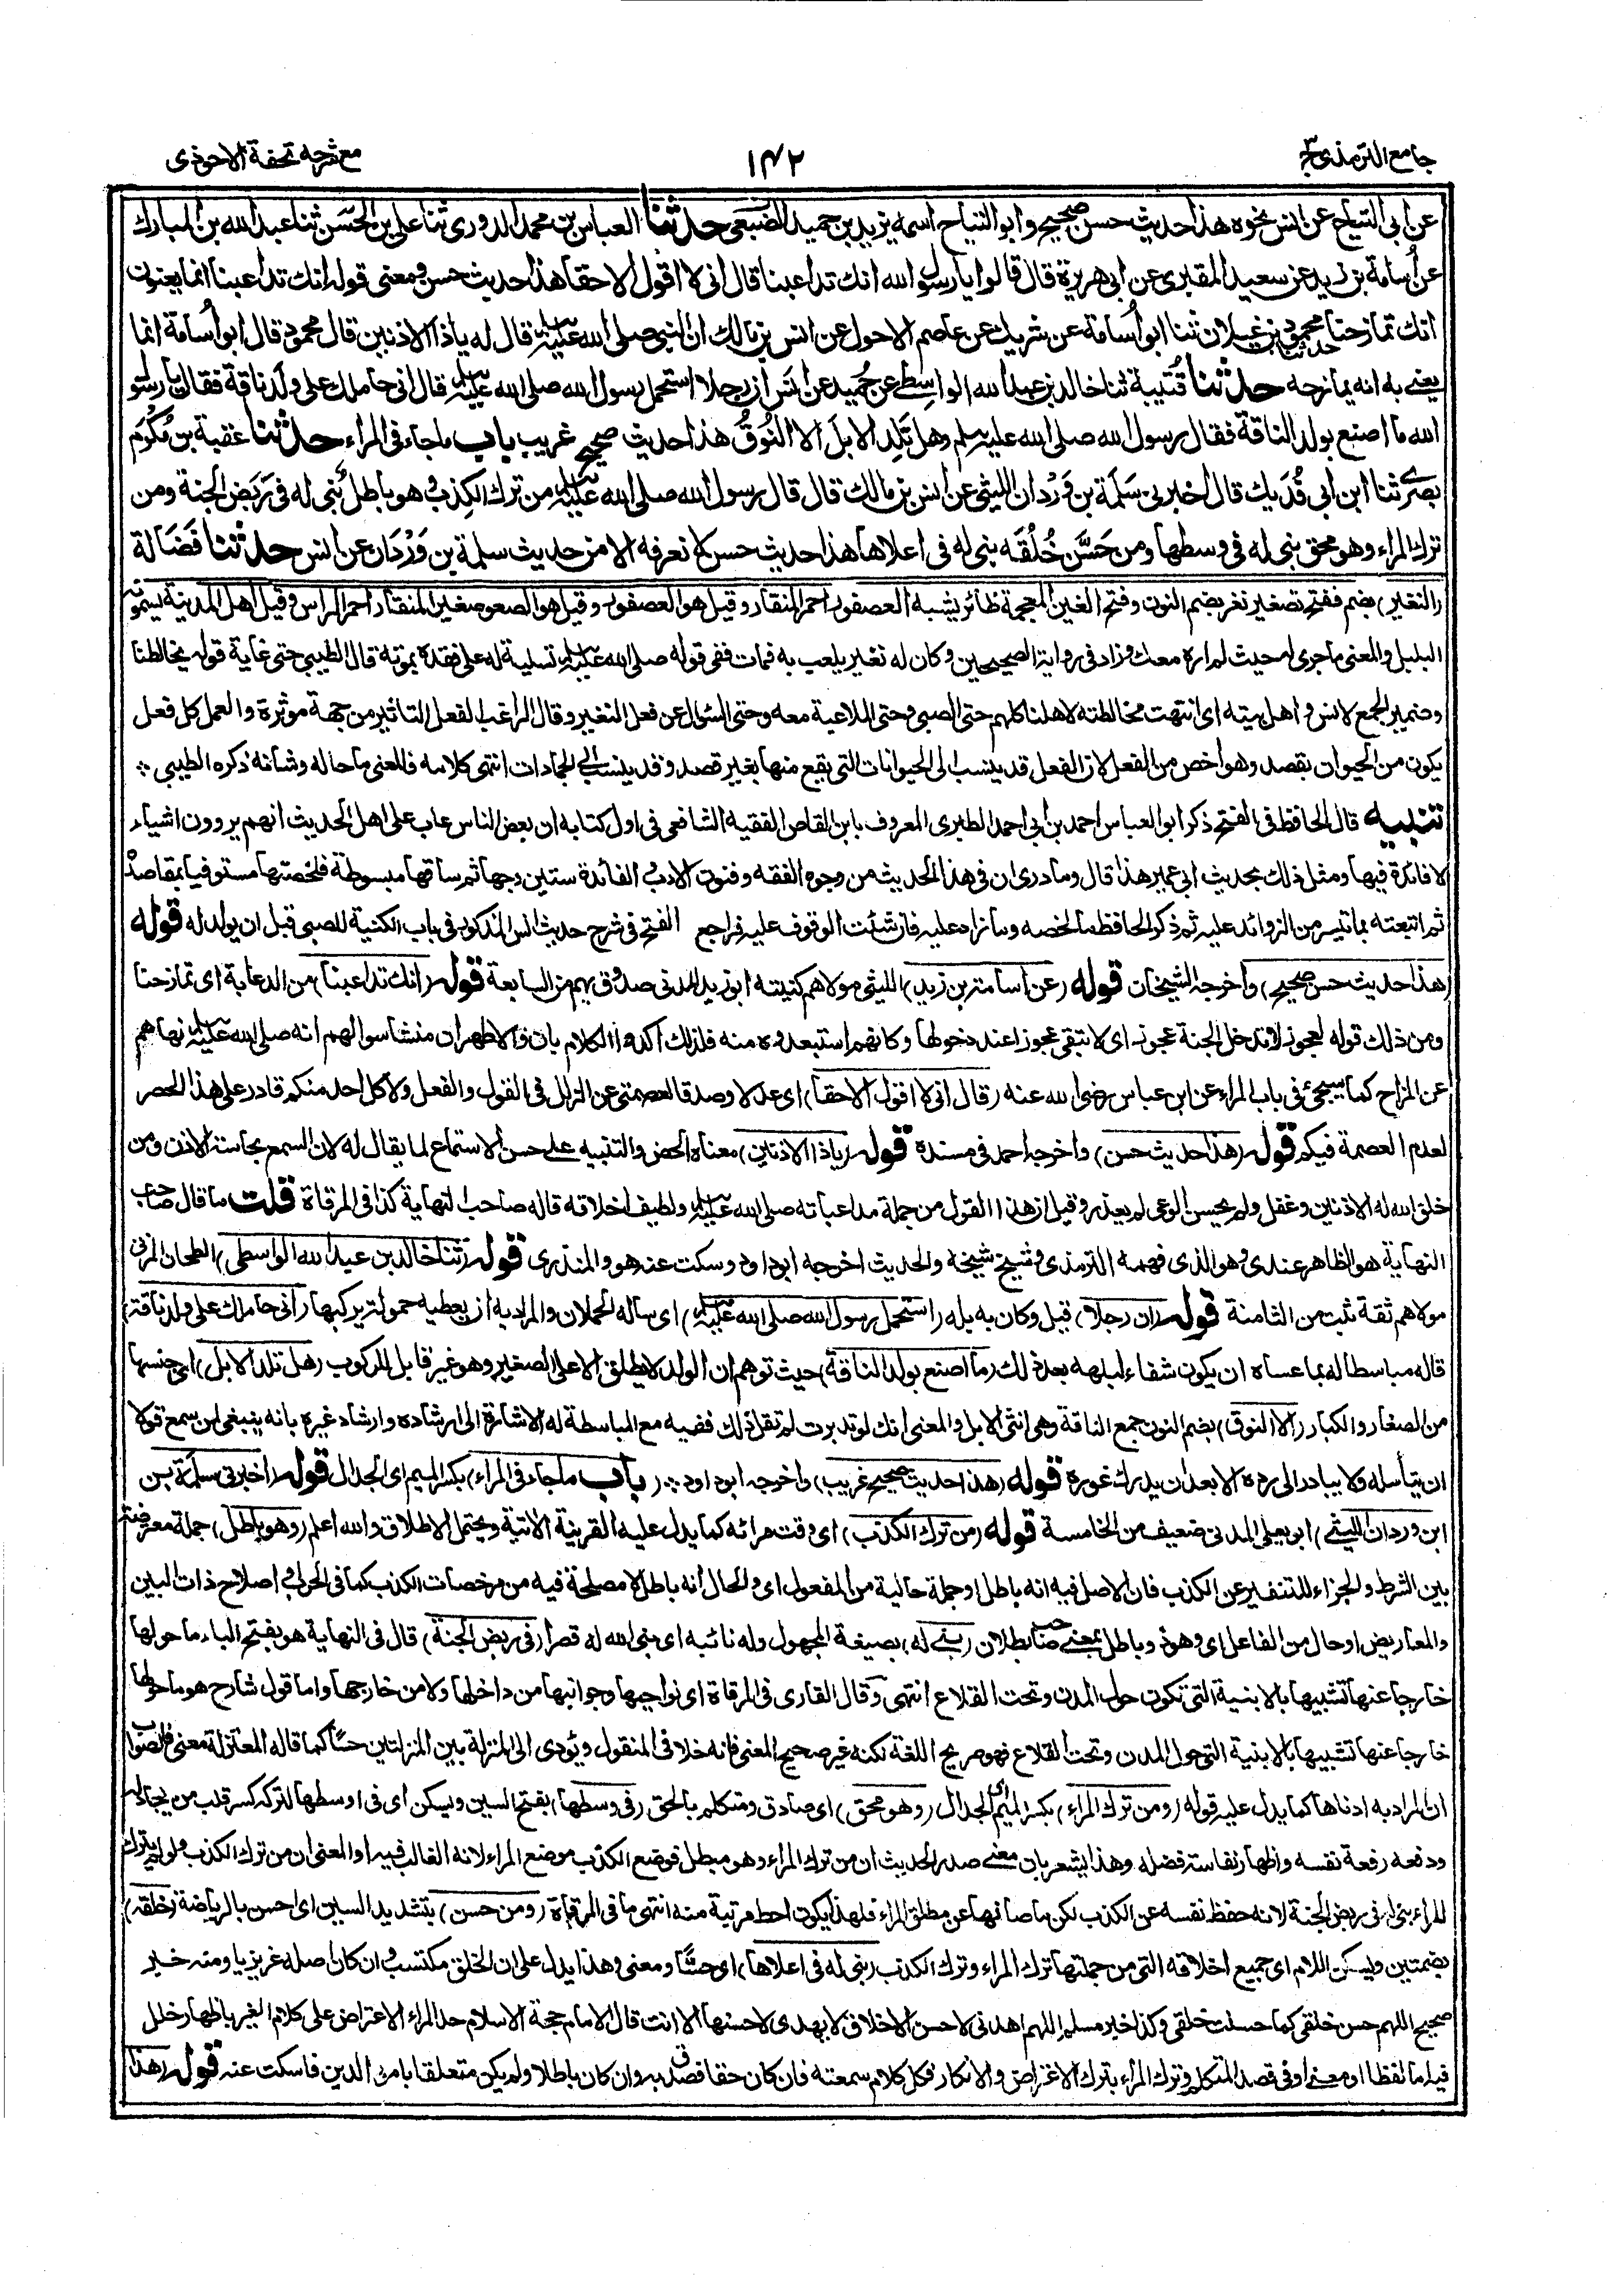 جامع الترمذی ج۳
۱۴۲
مع شرحه تحفة الاحوذی
عن ابی التیاح عن انس نحوه هذا حدیث حسن صحیح وابو التیاح اسمه یزید بن حمید الضبعی حدثنا العباس بن محمد الدوری ثنا علی بن الحسن ثنا عبد الله بن المبارك
عن اُسامة بن زید عن سعید المقبری عن ابی هریرة قال قالوا یا رسول الله انك تداعبنا قال انی لا اقول الا حقا هذا حدیث حسن ومعنی قوله انك تداعبنا انما یعنون
انك تمازحنا حدثنا محمود بن غیلان ثنا ابو اُسامة عن شریك عن عاصم الاحول عن انس بن مالك ان النبی صلی الله علیه وسلم قال له یا ذا الاذنین قال محمود قال ابو اُسامة انما
یعنی به انه یمازحه حدثنا قُتیبة ثنا خالد بن عبد الله الواسِطی عن حُمید عن انس ان رجلا استحمل رسول الله صلی الله علیه وسلم قال انی حاملك علی ولد ناقة فقال یا رسول
الله ما اصنع بولد الناقة فقال رسول الله صلی الله علیه وسلم وهل تَلِد الابلَ الا النُوقُ هذا حدیث صحیح غریب باب ماجاء فی المراء حدثنا عقبة بن مُکْرَم
بصری ثنا ابن ابی فُدَیك قال اخبرنی سَلَمة بن وَرْدان اللیثی عن انس بن مالك قال قال رسول الله صلی الله علیه وسلم من ترك الکِذب وهو باطل بُنی له فی رَبَض الجنة ومن
ترك المراء وهو محق بنی له فی وسطها ومن حَسَّن خُلُقَه بنی له فی اعلاها هذا حدیث حسن لا نعرفه الا من حدیث سلمة بن وَرْدان عن انس حدثنا فَضَالة
(النغیر) بضم ففتح تصغیر نغر بضم النون وفتح الغین المعجمة طائر یشبه العصفور احمر المنقار وقیل هو العصفور وقیل هو الصعو صغیر المنقار احمر الراس وقیل اهل المدینة یسمونه
البلبل والمعنی ماجری له حیث لم اره معك وزاد فی روایة الصحیحین وکان له نغیر یلعب به فمات ففی قوله صلی الله علیه وسلم تسلیة له علی فقده بموته قال الطیبی حتی غایة قوله یخالطنا
وضمیر الجمع لانس واهل بیته ای انتهت مخالطته لاهلنا کلهم حتی الصبی وحتی الملاعبة معه وحتی السؤال عن فعل النغیر وقال الراغب الفعل التاثیر من جهة موثرة والعمل کل فعل
یکون من الحیوان بقصد وهو اخص من الفعل لان الفعل قد ینسب الی الحیوانات التی یقع منها بغیر قصد وقد ینسب الی الجمادات انتهی کلامه فالمعنی ما حاله وشانه ذکره الطیبی ؞
تنبیه قال الحافظ فی الفتح ذکر ابو العباس احمد بن ابی احمد الطبری المعروف بابن القاص الفقیه الشافعی فی اول کتابه ان بعض الناس عاب علی اهل الحدیث انهم یروون اشیاء
لا فائدة فیها ومثل ذلك بحدیث ابی عمیر هذا قال وما دری ان فی هذا الحدیث من وجوه الفقه وفنون الادب الفائدة ستین وجها ثم ساقها مبسوطة فلخصتها مستوفیا بمقاصده
ثم اتبعته بما تیسر من الزوائد علیه ثم ذکر الحافظ ما لخصه وما زاد علیه فان شئت الوقوف علیه فراجع الفتح فی شرح حدیث انس المذکور فی باب الکنیة للصبی قبل ان یولد له قوله
(هذا حدیث حسن صحیح) واخرجه الشیخان قوله (عن اسامة بن زید) اللیثی مولاهم کنیته ابو زید المدنی صدوق یهم من السابعة قوله (انك تداعبنا) من الدعابة ای تمازحنا
ومن ذلك قوله لعجوز لا تدخل الجنة عجوز ای لا تبقی عجوزا عند دخولها وکانهم استبعدوه منه فلذلك اکدوا الکلام بان والاظهر ان منشا سوالهم انه صلی الله علیه وسلم نهاهم
عن المزاح کما سیجئ فی باب المراء عن ابن عباس رضی الله عنه (قال انی لا اقول الا حقا) ای عدلا وصدقا لعصمتی عن الزلل فی القول والفعل ولا کل احد منکم قادر علی هذا الحصر
لعدم العصمة فیکم قوله (هذا حدیث حسن) واخرجه احمد فی مسنده قوله (یا ذا الاذنین) معناه الحض والتنبیه علی حسن الاستماع لما یقال له لان السمع بحاسة الاذن ومن
خلق الله له الاذنین وغفل ولم یحسن الوعی لم یعذر وقیل ان هذا القول من جملة مداعباته صلی الله علیه وسلم ولطیف اخلاقه قاله صاحب النهایة کذا فی المرقاة قلت ما قال صاحب
النهایة هو الظاهر عندی وهو الذی فهمه الترمذی وشیخ شیخه والحدیث اخرجه ابوداود وسکت عنه هو والمنذری قوله (ثنا خالد بن عبد الله الواسطی) الطحان المزنی
مولاهم ثقة ثبت من الثامنة قوله (ان رجلا) قیل وکان به بله (استحمل رسول الله صلی الله علیه وسلم) ای ساله الحملان والمراد به ان یعطیه حمولة یرکبها (انی حاملك علی ولد ناقة)
قاله مباسطا له بما عساه ان یکون شفاء لبلهه بعد ذلك (ما اصنع بولد الناقة) حیث توهم ان الولد لا یطلق الا علی الصغیر وهو غیر قابل للرکوب (هل تلد الابل) ای جنسها
من الصغار والکبار (الا النوق) بضم النون جمع الناقة وهی انثی الابل والمعنی انك لو تدبرت لم تقل ذلك ففیه مع المباسطة له الاشارة الی ارشاده وارشاد غیره بانه ینبغی لمن سمع قولا
ان یتأمله ولا یبادر الی رده الا بعد ان یدرك غوره قوله (هذا حدیث صحیح غریب) واخرجه ابو داود ؞ (باب ماجاء فی المراء) بکسر المیم ای الجدال قوله (اخبرنی سلمة بن
ابن وردان اللیثی) ابو یعلی المدنی ضعیف من الخامسة قوله (من ترك الکذب) ای وقت مرائه کما یدل علیه القرینة الاتیة ویحتمل الاطلاق والله اعلم (وهو باطل) جملة معترضة
بین الشرط والجزاء للتنفیر عن الکذب فان الاصل فیه انه باطل او جملة حالیة من المفعول ای والحال انه باطل لا مصلحة فیه من مرخصات الکذب کما فی الحرب او اصلاح ذات البین
والمعاریض او حال من الفاعل ای وهو ذو باطل بمعنی صاحب بطلان (بنی له) بصیغة المجهول وله نائبه ای بنی الله له قصرا (فی ربض الجنة) قال فی النهایة هو بفتح الباء ما حولها
خارجا عنها تشبیها بالابنیة التی تکون حول المدن وتحت القلاع انتهی وقال القاری فی المرقاة ای نواحیها وجوانبها من داخلها ولا من خارجها واما قول شارح هو ما حولها
خارجا عنها تشبیها بالابنیة التی حول المدن وتحت القلاع فهو صریح اللغة لکنه غیر صحیح المعنی فانه خلاف المنقول ویؤدی الی المنزلة بین المنزلتین حسا کما قاله المعتزلة معنی فالصواب
ان المراد به ادناها کما یدل علیه قوله (ومن ترك المراء) بکسر المیم ای الجدال (وهو محق) ای صادق ومتکلم بالحق (فی وسطها) بفتح السین ویسکن ای فی اوسطها لترکه کسر قلب من یجادله
ودفعه رفعة نفسه واظهار نفاسة فضله وهذا یشعر بان معنی صدر الحدیث ان من ترك المراء وهو مبطل فوضع الکذب موضع المراء لانه الغالب فیه او المعنی ان من ترك الکذب ولو لم یترك
المراء بنی له فی ربض الجنة لانه حفظ نفسه عن الکذب لکن ما صانها عن مطلق المراء فلهذا یکون احط مرتبة منه انتهی ما فی المرقاة (ومن حسن) بتشدید السین ای احسن بالریاضة (خلقه)
بضمتین ویسکن اللام ای جمیع اخلاقه التی من جملتها ترك المراء وترك الکذب (بنی له فی اعلاها) ای حسّا ومعنی وهذا یدل علی ان الخلق مکتسب وان کان اصله غریزیا ومنه خبر
صحیح اللهم حسن خلقی کما حسنت خلقی وکذا خبر مسلم اللهم اهدنی لاحسن الاخلاق لا یهدی لاحسنها الا انت قال الامام حجة الاسلام حد المراء الاعتراض علی کلام الغیر باظهار خلل
فیه اما لفظا او معنی او فی قصد المتکلم وترك المراء بترك الاعتراض والانکار فکل کلام سمعته فان کان حقا فصدق به وان کان باطلا ولم یکن متعلقا بامور الدین فاسکت عنه قوله (هذا